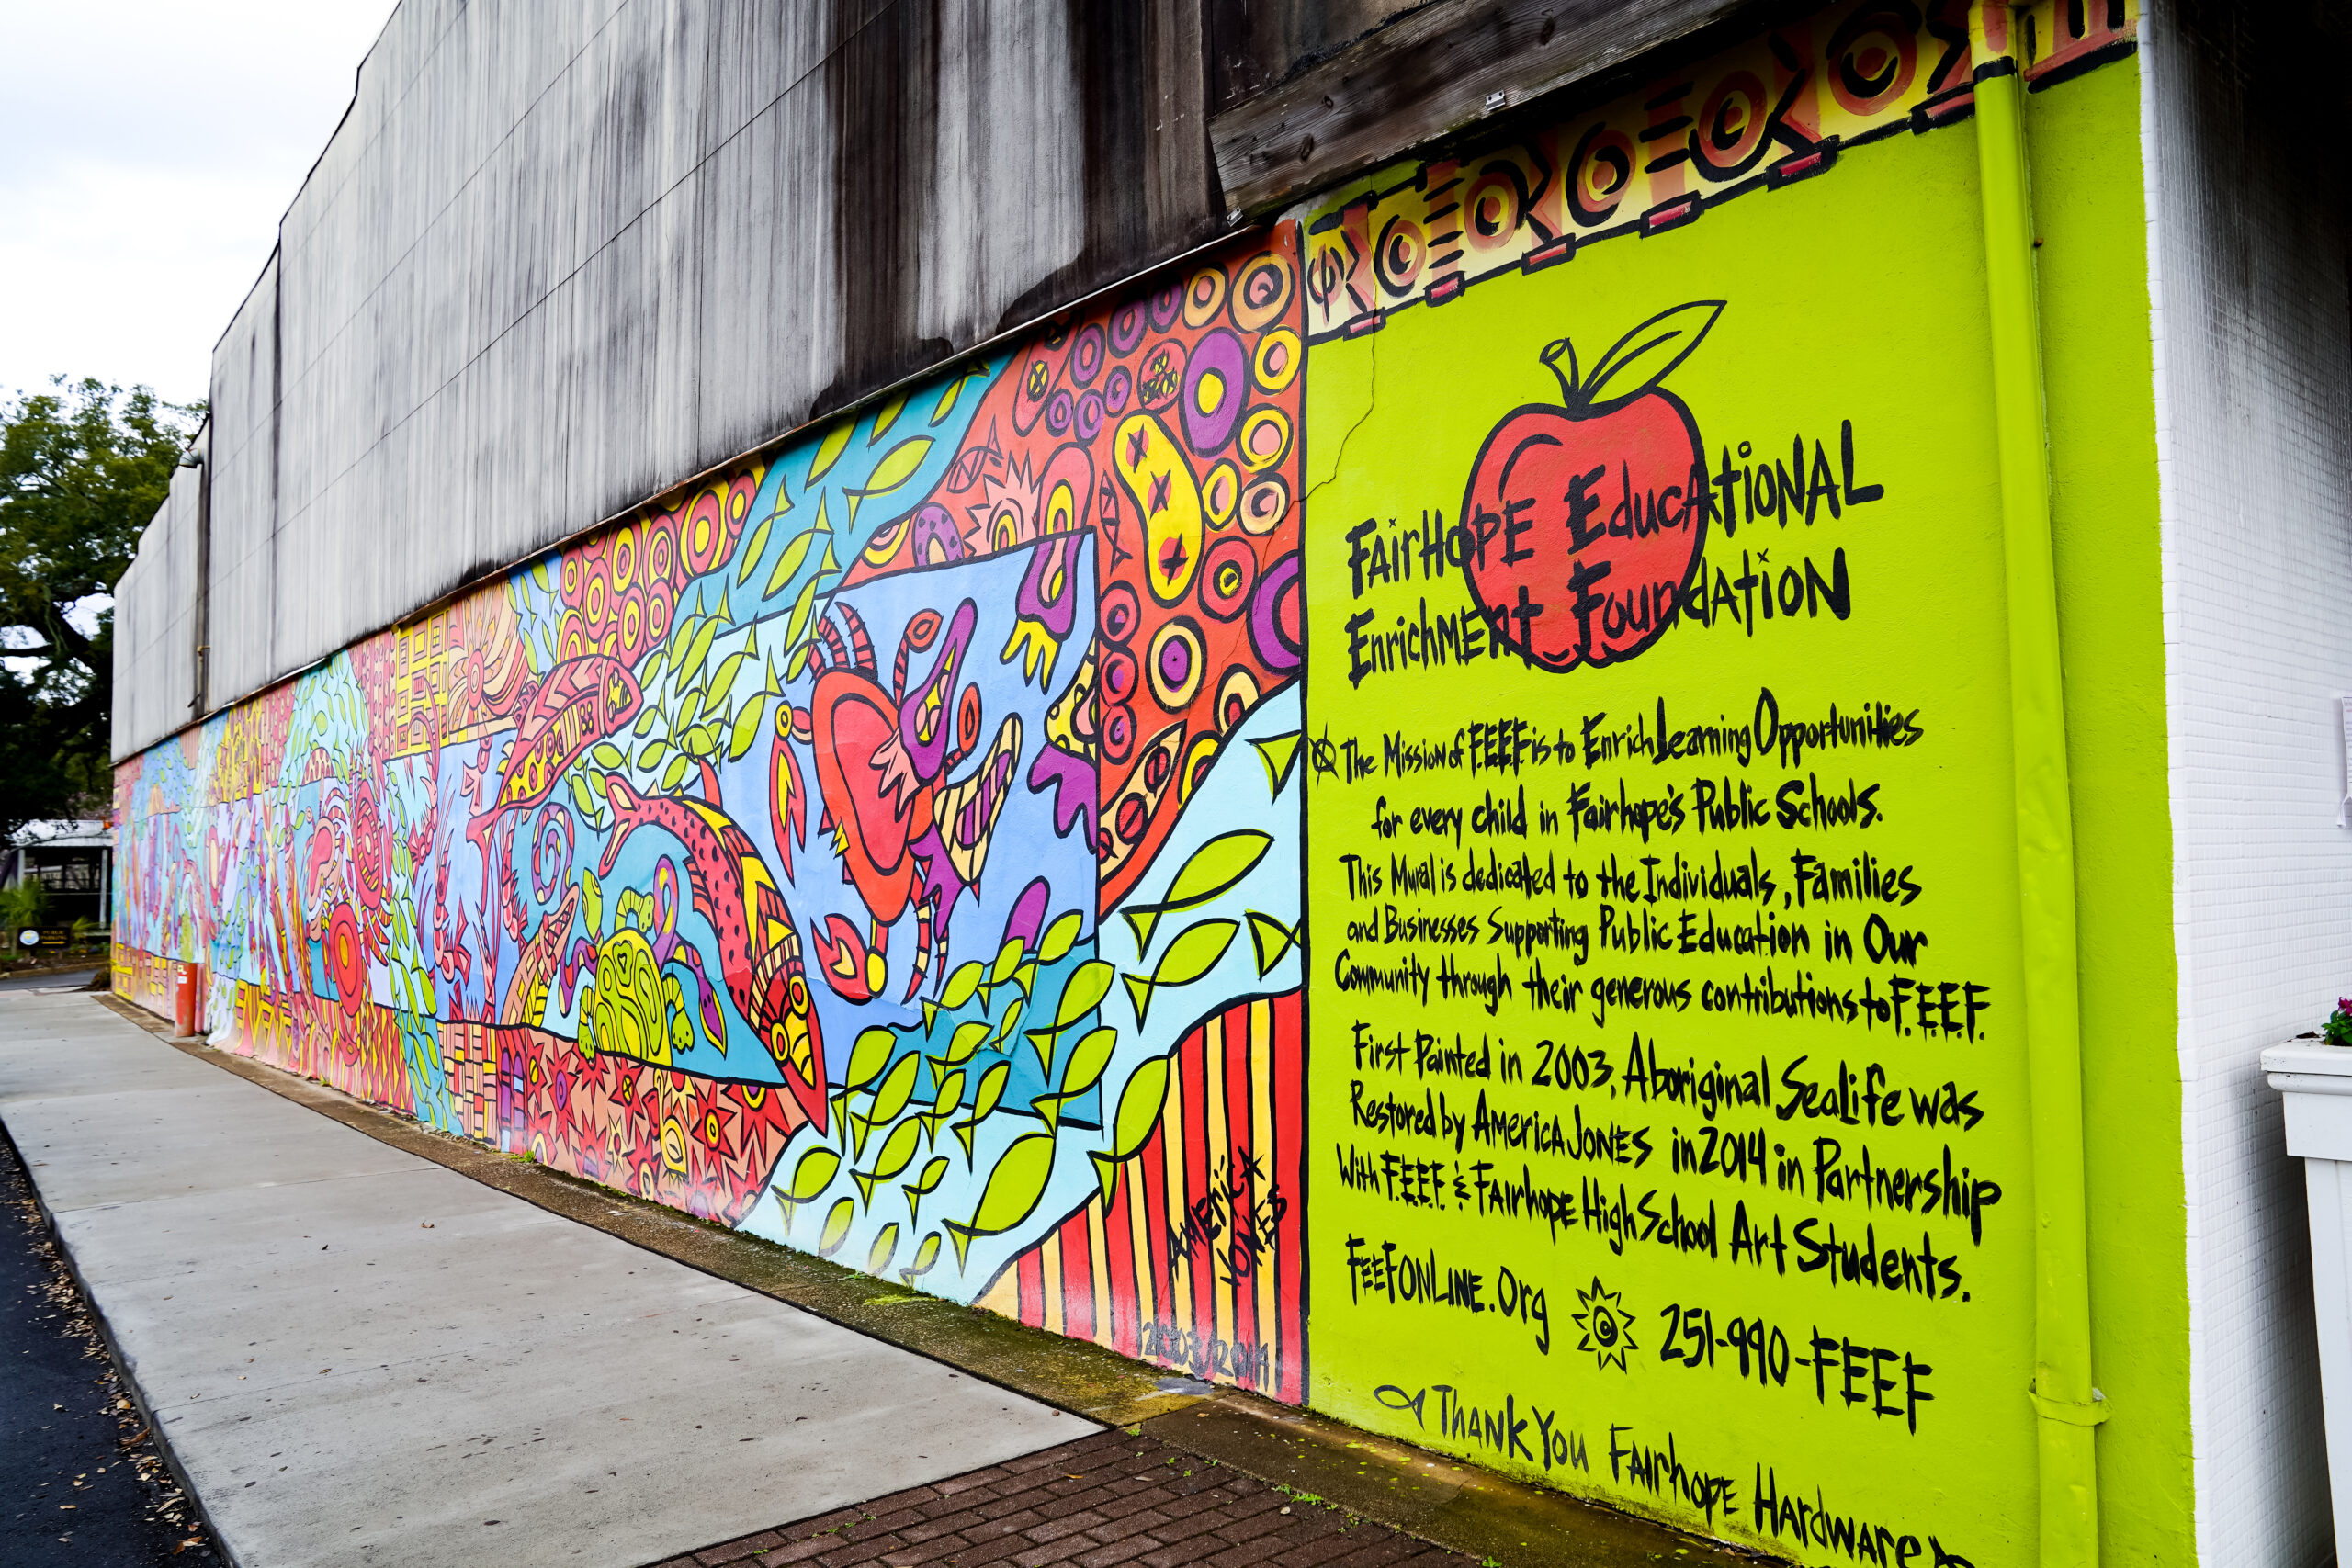 Fairhope Educational
Enrichment Foundation
The Mission of F.E.E.F. is to Enrich Learning Opportunities
for every child in Fairhope's Public Schools.
This Mural is dedicated to the Individuals, Families
and Businesses Supporting Public Education in Our
Community through their generous contributions to F.E.E.F.
First Painted in 2003, Aboriginal Sealife was
Restored by America Jones in 2014 in Partnership
With F.E.E.F. & Fairhope High School Art Students.
FeeFonline.Org 251-990-FEEF
Thank You Fairhope Hardware
America
Jones
2003/2014